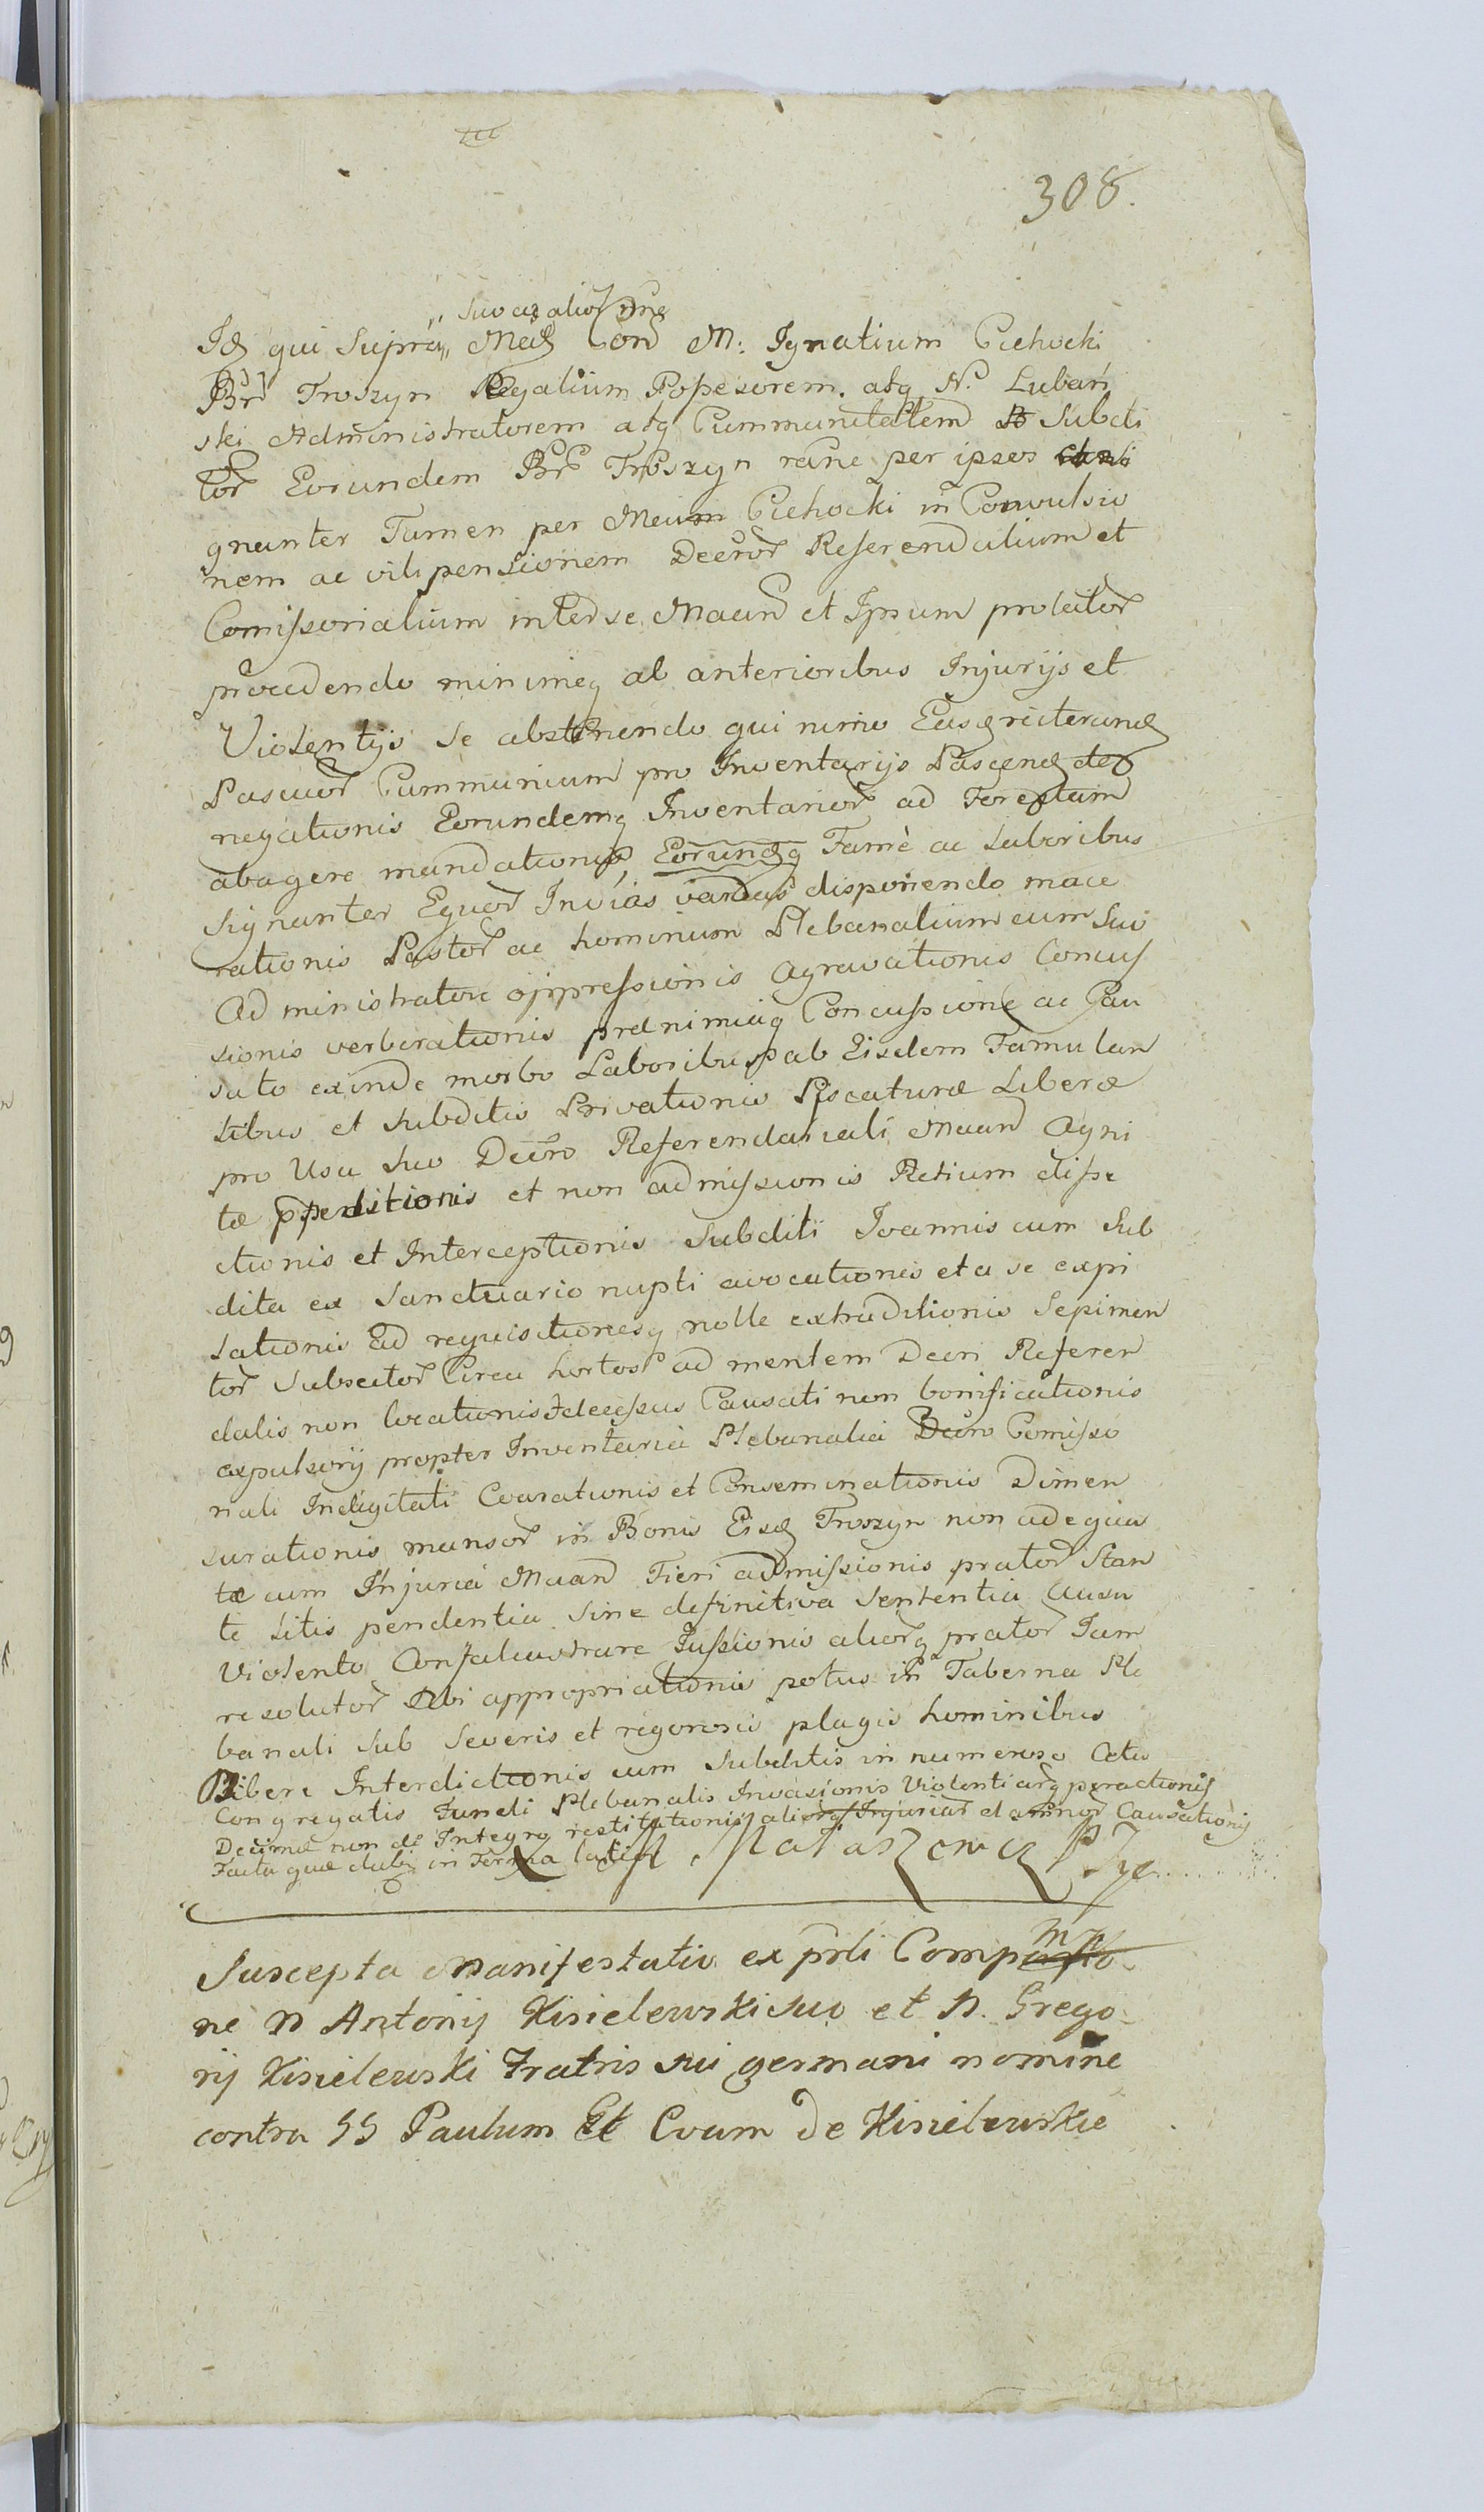 308.
suo ac alior nne
Id qui supra Mād Con M: Ignatium Cichocki
Br Troszyn Regalium Possesorem. atq N. Lubań
ski Administratorem atq Cummunitatem Subdi
tor Eorundem Br Troszyn rane per ipsos
gnanter Tamen per Meum Cichocki in Convulsio
nem ac vilipensionem Decror Referendalium et
Comissorialium inter se Maand et Ipsum prolator
procedendo minimeq ab anterioribus Injurijs et
Violentijs se abstinendo qui nimo Easq reiterand
Pascuor Cummunium pro Inventarijs Pascend de
negationis Eorundemq Inventarior ad Forestam
abagere mandationis, Eorundq Famē ac Laboribus
signanter Equor Invias varias disponendo mace
rationis Pastor ac hominum Plebanalium cum suo
Administratore oppressionis Agravationis Concus
sionis verberationis praenimiaq Concussione ac Cau
sato exinde morbo Laboribus ab Eisdem Famulan
tibus et subditis Privationis Piscaturae Liberae
pro Usu suo Decro Referendariali Maand Agni
tae et non admissionis Retium dispe
ctionis et Interceptionis Subditi Joannis cum Sub
dita ex Sanctuario nupti avocationis et a se expi
sationis Ad requisitionesq nolle extraditionis Sepimen
tor Subsector Circa hortos ad mentem Decri Referen
dalis non locationis Causati non bonificationis
expulsorij propter Inventaria Plebanalia Decro Comisso
riali Indigitati Coarationis et Conseminationis Dimen
surationis mansor in Bonis Eisd Troszyn non adequa
tae cum Injuria Maand Fieri admissionis prator Stan
te Litis pendentia sine definitiva sententia ausu
violento Jussionis aliorq prator Jam
resolutor Sibi appropriationis potus in Taberna Ple
banali sub severis et rigorosis plagis hominibus
Bibere Interdictionis cum Subditis in numeroso Cetu
Congregatis Fundi Plebanalis Invasionis Violentiarq peractionis
Decimae non de Integro restitutionis aliorq Injuriar et damnor Causationis
Facta quae in Forma
Suscepta Manifestatio ex prli Comp
ne N Antonij Kisielewski suo et N. Grego
rij Kisielewski Fratris sui germani nomine
contra SS Paulum Et Evam de Kisielewskie